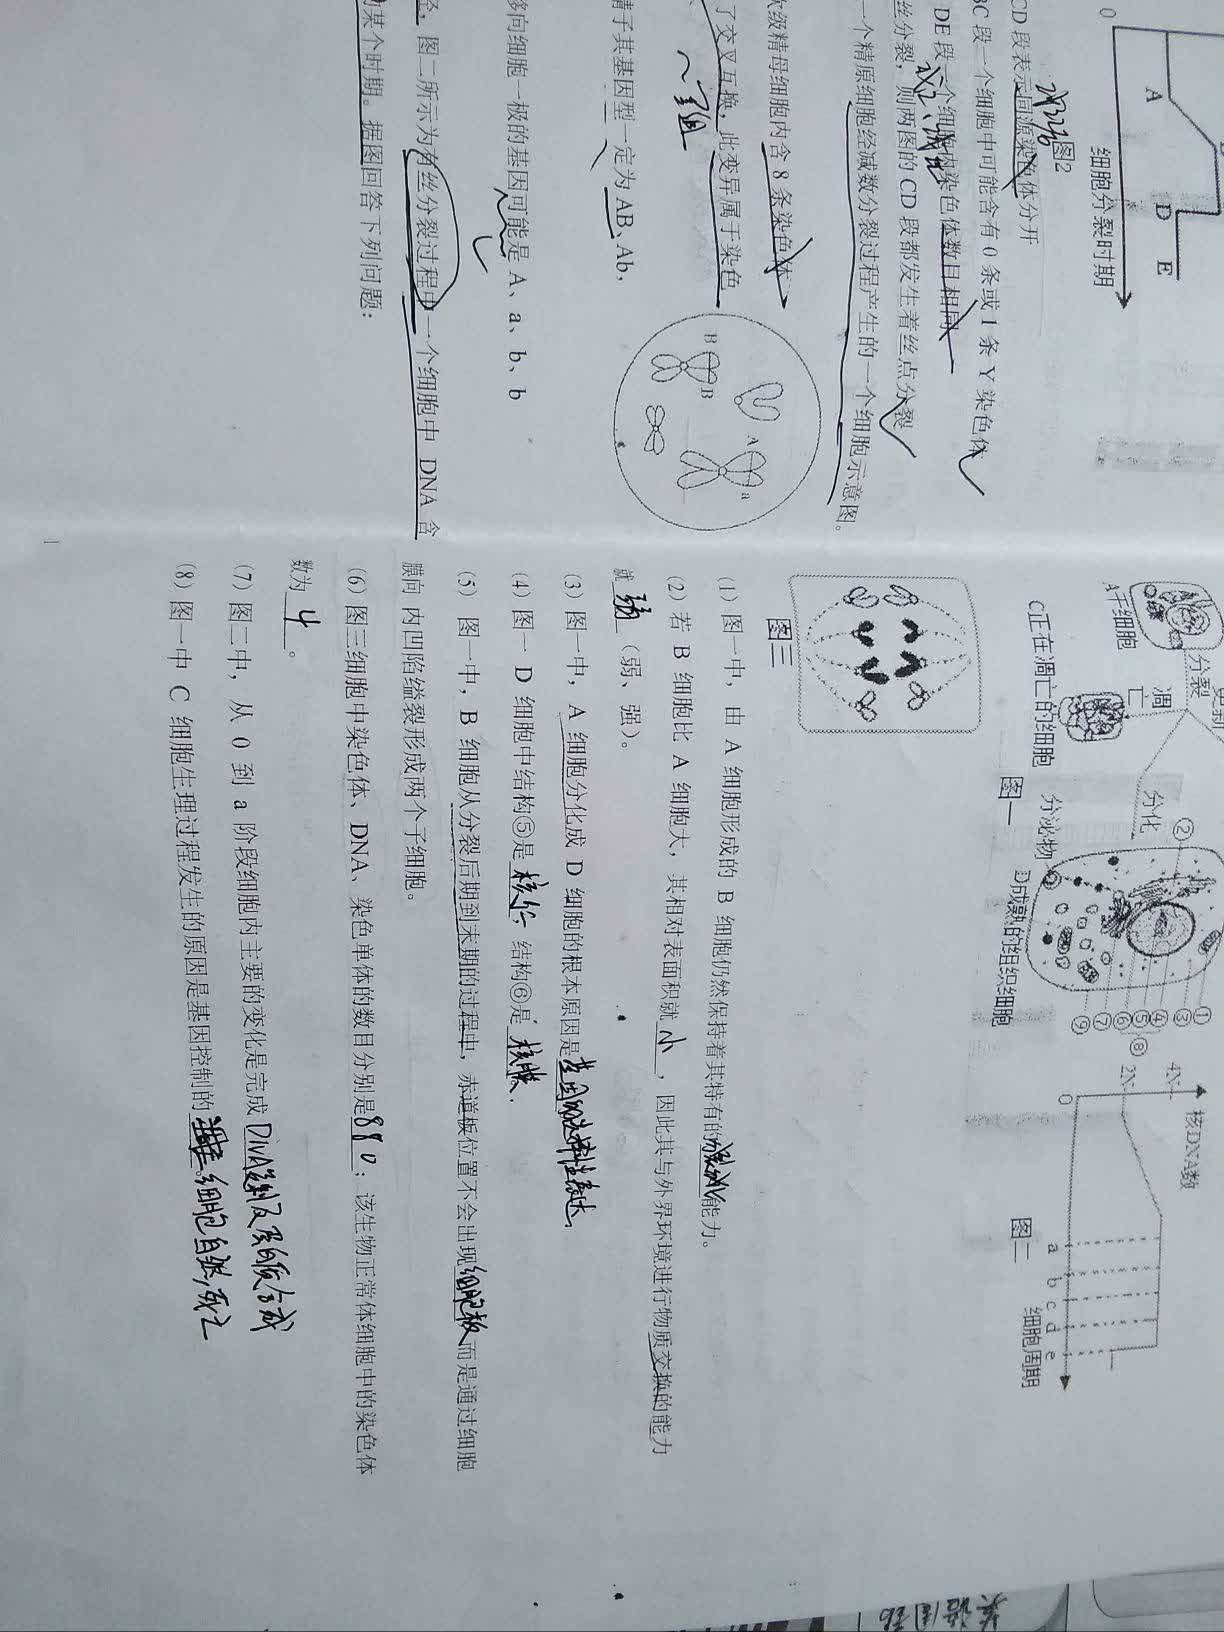 0
A
D
E
图2
细胞分裂时期
CD 段表示同源染色体分开
BC 段一个细胞中可能含有 0 条或 1 条 Y 染色体
DE 段一个细胞内染色体数目相同
丝分裂，则两图的 CD 段都发生着丝点分裂
一个精原细胞经减数分裂过程产生的一个细胞示意图。
次级精母细胞内含 8 条染色体
了交叉互换，此变异属于染色
组
精子其基因型一定为 AB、Ab，
移向细胞一极的基因可能是 A、a、b、b
B
B
A
a
图二所示为有丝分裂过程中一个细胞中 DNA 含
的某个时期。据图回答下列问题：
1
A干细胞
分裂
凋亡
C正在凋亡的细胞
图一
分化
分泌物
D成熟的组织细胞
②
①
③
④
⑤
⑥
⑦
⑧
⑨
核DNA数
4N
2N
0
a
b
c
d
e
细胞周期
图二
图三
(1) 图一中，由 A 细胞形成的 B 细胞仍然保持着其特有的分裂分化能力。
(2) 若 B 细胞比 A 细胞大，其相对表面积就 小 ，因此其与外界环境进行物质交换的能力
就 弱 (弱、强)。
(3) 图一中，A 细胞分化成 D 细胞的根本原因是基因的选择性表达
(4) 图一 D 细胞中结构⑤是 核仁，结构⑥是 核膜.
(5) 图一中，B 细胞从分裂后期到末期的过程中，赤道板位置不会出现细胞板而是通过细胞
膜向 内凹陷缢裂形成两个子细胞。
(6) 图三细胞中染色体、DNA、染色单体的数目分别是8 8 0；该生物正常体细胞中的染色体
数为 4 。
(7) 图二中，从 0 到 a 阶段细胞内主要的变化是完成DNA复制及蛋白质合成
(8) 图一中 C 细胞生理过程发生的原因是基因控制的 细胞自然死亡
英语周报